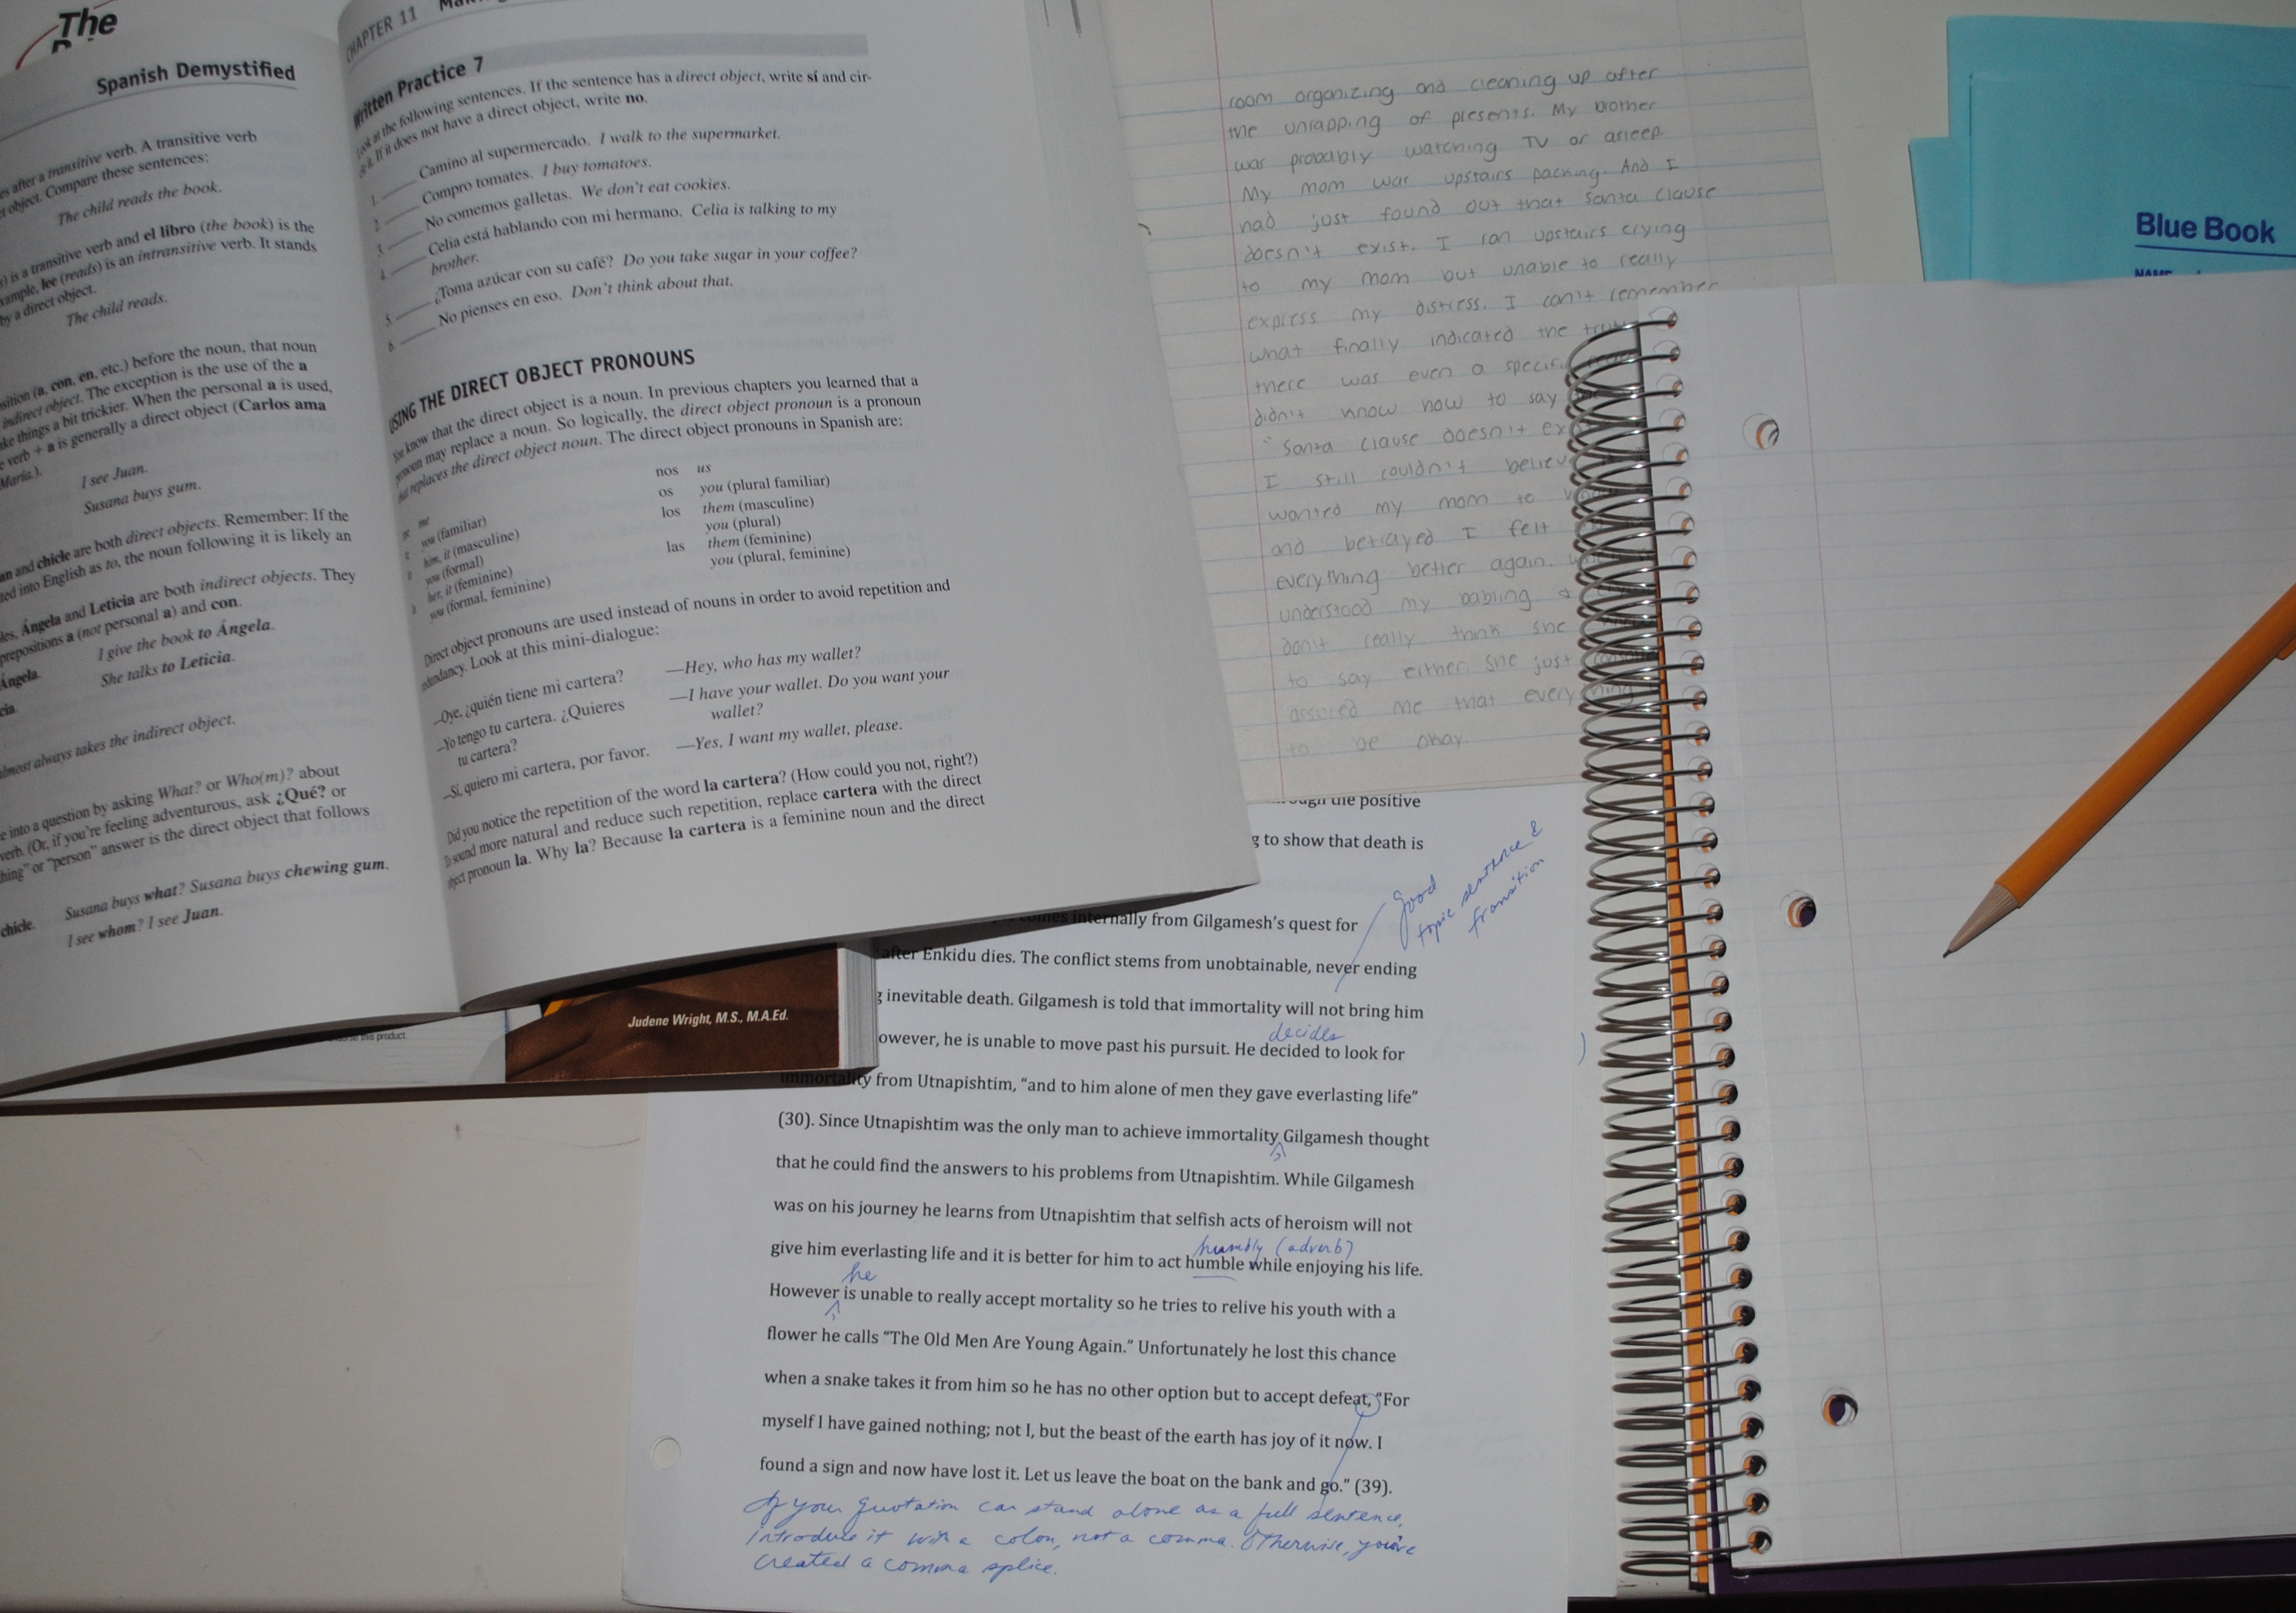 The
Spanish Demystified
es after a transitive verb. A transitive verb
object. Compare these sentences:
The child reads the book.
) is a transitive verb and el libro (the book) is the
xample, lee (reads) is an intransitive verb. It stands
by a direct object.
The child reads.
sition (a, con, en, etc.) before the noun, that noun
indirect object. The exception is the use of the a
ke things a bit trickier. When the personal a is used,
verb + a is generally a direct object (Carlos ama
María.).
I see Juan.
Susana buys gum.
an and chicle are both direct objects. Remember: If the
ted into English as to, the noun following it is likely an
les, Ángela and Leticia are both indirect objects. They
prepositions a (not personal a) and con.
Ángela.
I give the book to Ángela.
cia.
She talks to Leticia.
lmost always takes the indirect object.
e into a question by asking What? or Who(m)? about
verb. (Or, if you're feeling adventurous, ask ¿Qué? or
hing" or "person" answer is the direct object that follows
chicle.
Susana buys what? Susana buys chewing gum.
I see whom? I see Juan.
CHAPTER 11
Written Practice 7
Look at the following sentences. If the sentence has a direct object, write sí and cir-
it. If it does not have a direct object, write no.
1. Camino al supermercado. I walk to the supermarket.
2. Compro tomates. I buy tomatoes.
3. No comemos galletas. We don't eat cookies.
4. Celia está hablando con mi hermano. Celia is talking to my
brother.
5. ¿Toma azúcar con su café? Do you take sugar in your coffee?
6. No pienses en eso. Don't think about that.
USING THE DIRECT OBJECT PRONOUNS
You know that the direct object is a noun. In previous chapters you learned that a
pronoun may replace a noun. So logically, the direct object pronoun is a pronoun
that replaces the direct object noun. The direct object pronouns in Spanish are:
me
you (familiar)
him, it (masculine)
you (formal)
her, it (feminine)
you (formal, feminine)
nos us
os you (plural familiar)
los them (masculine)
you (plural)
las them (feminine)
you (plural, feminine)
Direct object pronouns are used instead of nouns in order to avoid repetition and
redundancy. Look at this mini-dialogue:
—Oye, ¿quién tiene mi cartera? —Hey, who has my wallet?
—Yo tengo tu cartera. ¿Quieres —I have your wallet. Do you want your
tu cartera? wallet?
—Sí, quiero mi cartera, por favor. —Yes, I want my wallet, please.
Did you notice the repetition of the word la cartera? (How could you not, right?)
To sound more natural and reduce such repetition, replace cartera with the direct
object pronoun la. Why la? Because la cartera is a feminine noun and the direct
this product.
Judene Wright, M.S., M.A.Ed.
room organizing and cleaning up after
the unrapping of presents. My brother
was probably watching TV or asleep.
My mom was upstairs packing. And I
had just found out that Santa Clause
doesn't exist. I ran upstairs crying
to my mom but unable to really
express my distress. I can't remember
what finally indicated the
there was even a specific
didn't know how to say
"Santa Clause doesn't ex
I still couldn't believ
wanted my mom to
and betrayed I felt
everything better again.
understood my babling
don't really think she
to say either. She just
assured me that everything
to be okay.
Blue Book
NAME
the positive
g to show that death is
good
topic sentence &
transition
internally from Gilgamesh's quest for
after Enkidu dies. The conflict stems from unobtainable, never ending
g inevitable death. Gilgamesh is told that immortality will not bring him
decides
owever, he is unable to move past his pursuit. He decided to look for
immortality from Utnapishtim, "and to him alone of men they gave everlasting life"
(30). Since Utnapishtim was the only man to achieve immortality, Gilgamesh thought
that he could find the answers to his problems from Utnapishtim. While Gilgamesh
was on his journey he learns from Utnapishtim that selfish acts of heroism will not
humbly (adverb)
give him everlasting life and it is better for him to act humble while enjoying his life.
he
However, is unable to really accept mortality so he tries to relive his youth with a
flower he calls "The Old Men Are Young Again." Unfortunately he lost this chance
when a snake takes it from him so he has no other option but to accept defeat, "For
myself I have gained nothing; not I, but the beast of the earth has joy of it now. I
found a sign and now have lost it. Let us leave the boat on the bank and go." (39).
If your quotation can stand alone as a full sentence,
introduce it with a colon, not a comma. Otherwise, you've
created a comma splice.